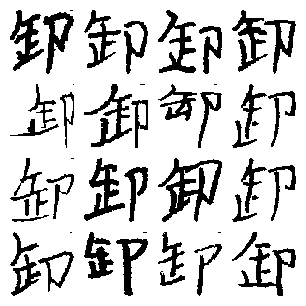 卸卸卸卸
卸卸卸卸
卸卸卸卸
卸卸卸卸